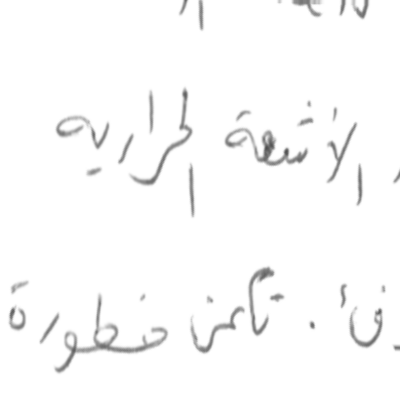 الأشعة الحرارية
فئ . تكمن خطورة